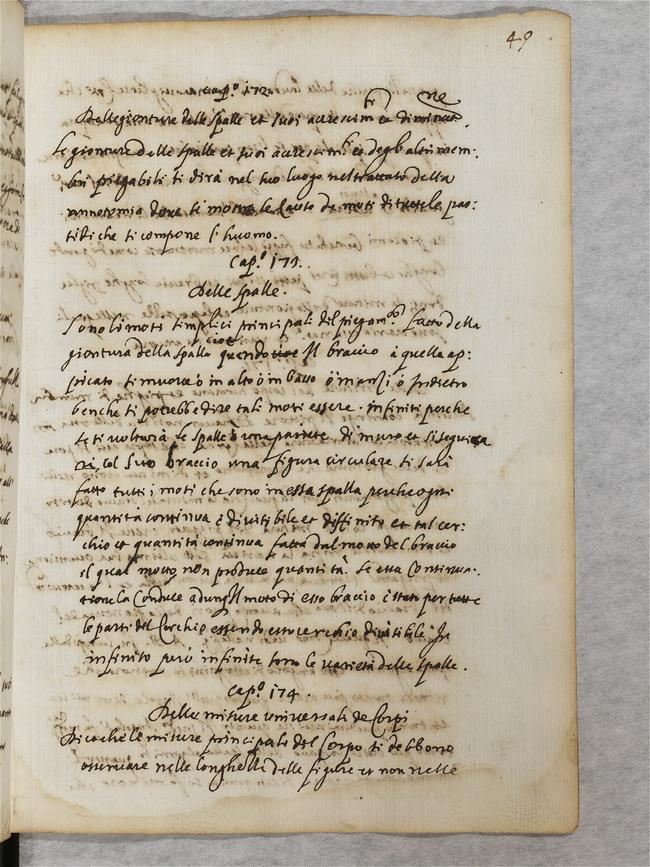 49
Cap.º 172
Delle gionture delle spalle et suoi acrescim.ti et diminut.ne
Le gionture delle spalle et suoi acrescim.ti et degli altri mem:
bri piegabili si dirà nel suo luogo nel trattato della
annotomia dove si mostra le cause de moti di tutte le par:
ti di che si compone l'huomo.
Cap.º 173.
Delle spalle.
Sono li moti simplici principali del piegam.to fatto della
giontura della spalla cioè quando il braccio à quella ap:
picato si muove ò in alto ò in basso ò inanzi ò indietro
benche si potrebbe dire tali moti essere infiniti perche
se si voltarà le spalle à una pariete di muro et si segnara
col suo braccio una figura circulare si sarà
fatto tutti i moti che sono in essa spalla perche ogni
quantità continua è divisibile et diffinito et tal cer:
chio et quantità continua fatta dal moto del braccio
il qual motto non produce quantità. Se essa continua:
tione la conduce adunq. il moto di esso braccio è stato per tutte
le parti del Cerchio essendo esso cerchio divisibile In
infinito però infinite sono le varietà delle spalle.
cap.º 174.
Delle misure universali de Corpi
Dico che le misure principali del Corpo si debbono
osservare nelle longhezze delle figure et non nelle